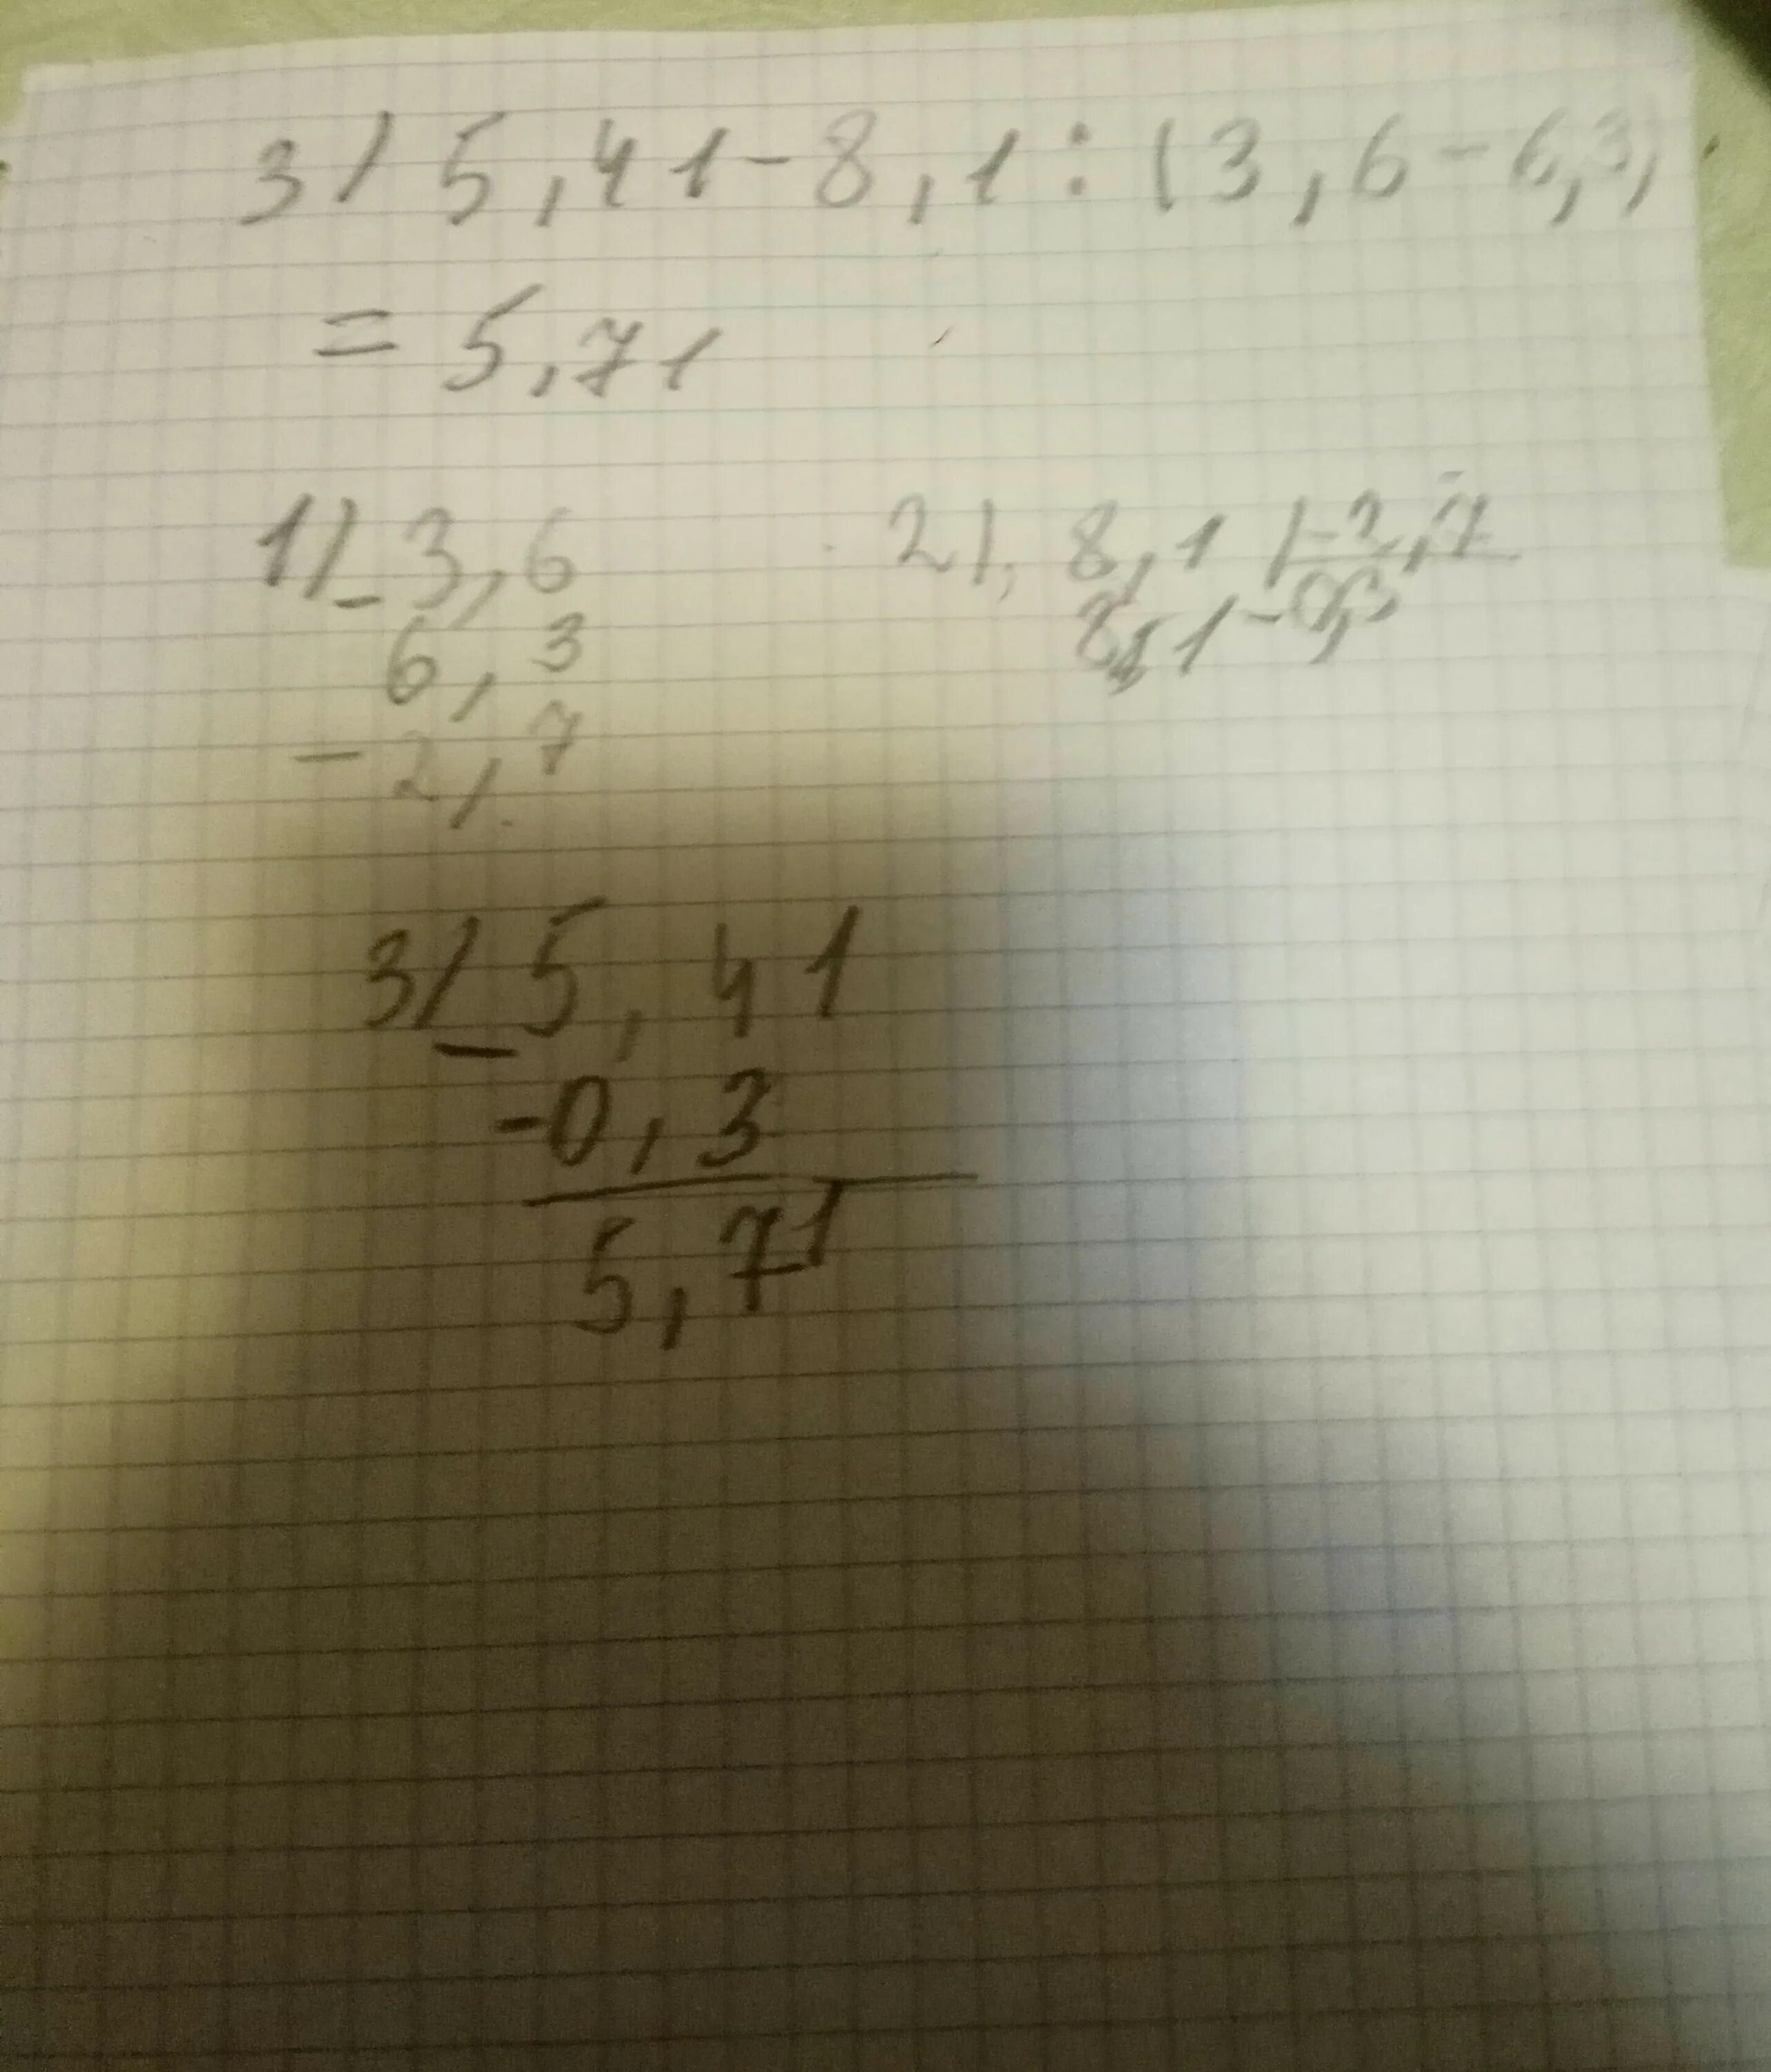 3) 5,41-8,1:(3,6-6,3)
= 5,71
1) - 3,6
6,3
-2,7
2) 8,1 |-2,7
8,1 -0,3
3) - 5,41
-0,3
5,71